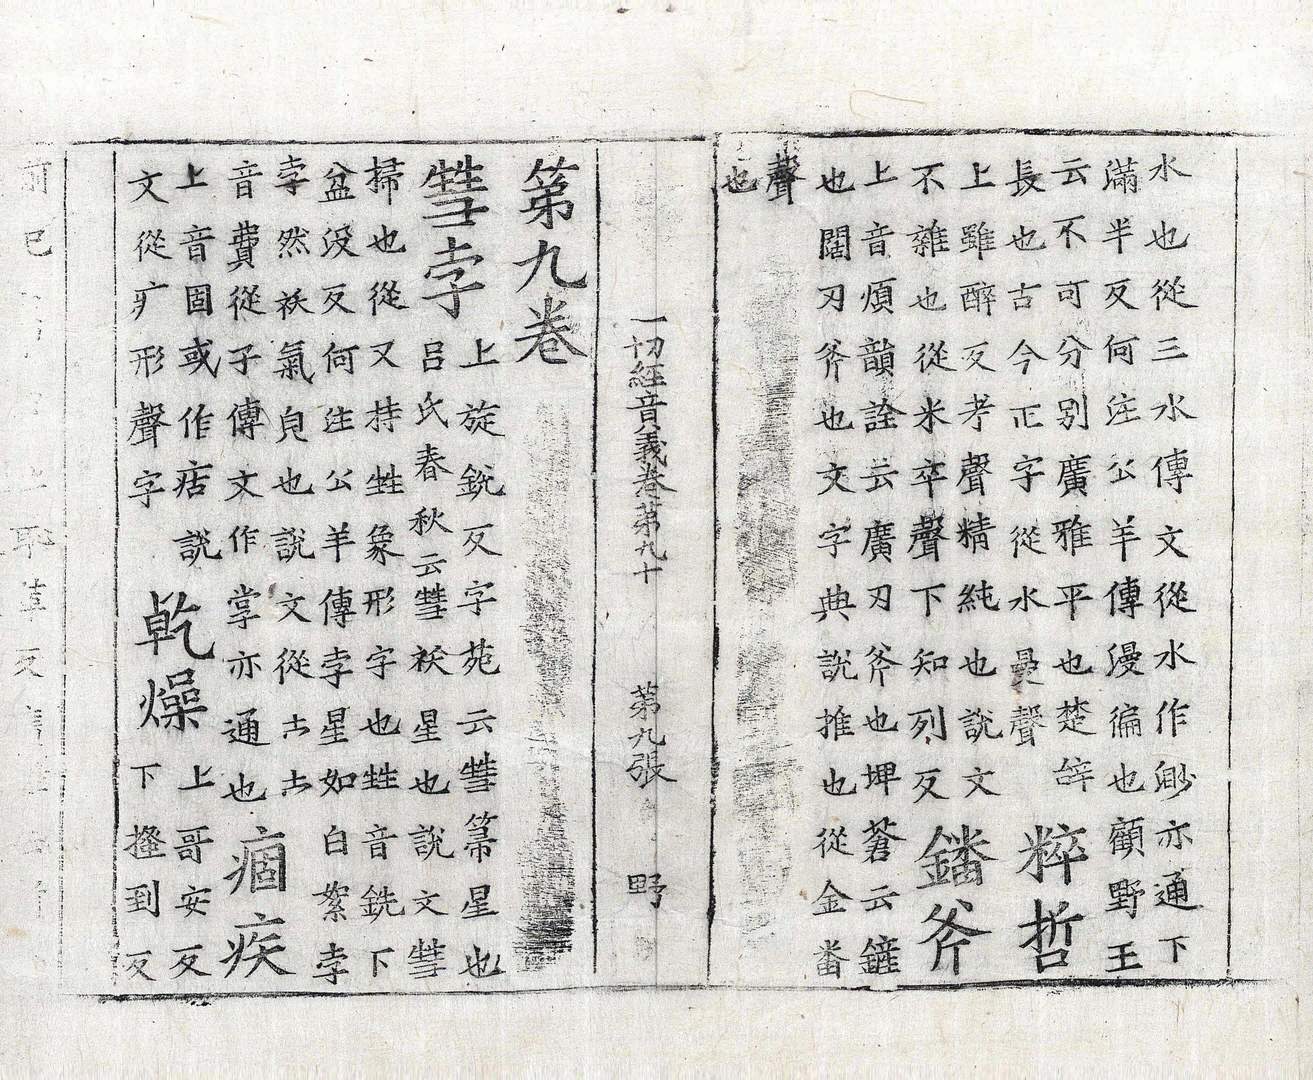 水也從三水傳文從水作渺亦通下
滿半反何注公羊傳漫徧也顧野王
云不可分別廣雅平也楚辞
長也古今正字從水曼聲
粹哲
上雖醉反考聲精純也說文
不雜也從米卒聲下知列反
鐇斧
上音煩韻詮云廣刃斧也埤蒼云鏟
也闊刃斧也文字典說推也從金番
聲
也
一切經音義卷第九十 第九張 野
第九卷
彗孛
上旋銳反字苑云彗箒星也
呂氏春秋云彗祅星也說文彗
掃也從又持甡象形字也甡音銑下
盆没反何注公羊傳孛星如白絮孛
孛然祅氣皃也說文從
音費從子傳文作亦通也
痼疾
上音固或作㽽說
文從疒形聲字
乾燥
上哥安反
下搔到反